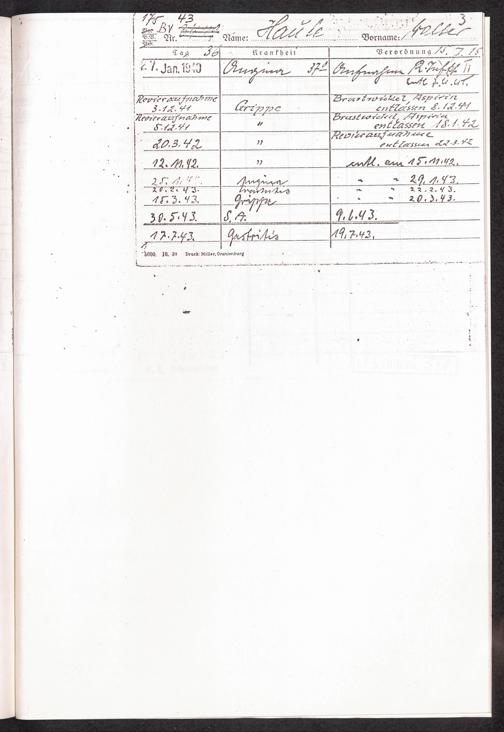 175 43 3
BV Nr. Name: Haule Vorname: Walter
36 15.7.15
Tag Krankheit Verordnung
27. Jan. 1940 Angina 37² Aufnahme II
Revieraufnahme Brustwickel, Aspirin
3.12.41 Grippe entlassen 8.12.41
Revieraufnahme Brustwickel, Aspirin
5.12.41 " entlassen 18.1.42
20.3.42 " Revieraufnahme
entlassen 22.3.42
12.11.42. " entl. am 15.11.42.
25.1.43. Angina " " 29.1.43.
20.2.43. " " 22.2.43.
15.3.43. Grippe " " 20.3.43.
30.5.43. S.A. 9.6.43.
17.7.43. Gastritis 19.7.43.
5000. 10. 39 Druck: Möller, Oranienburg